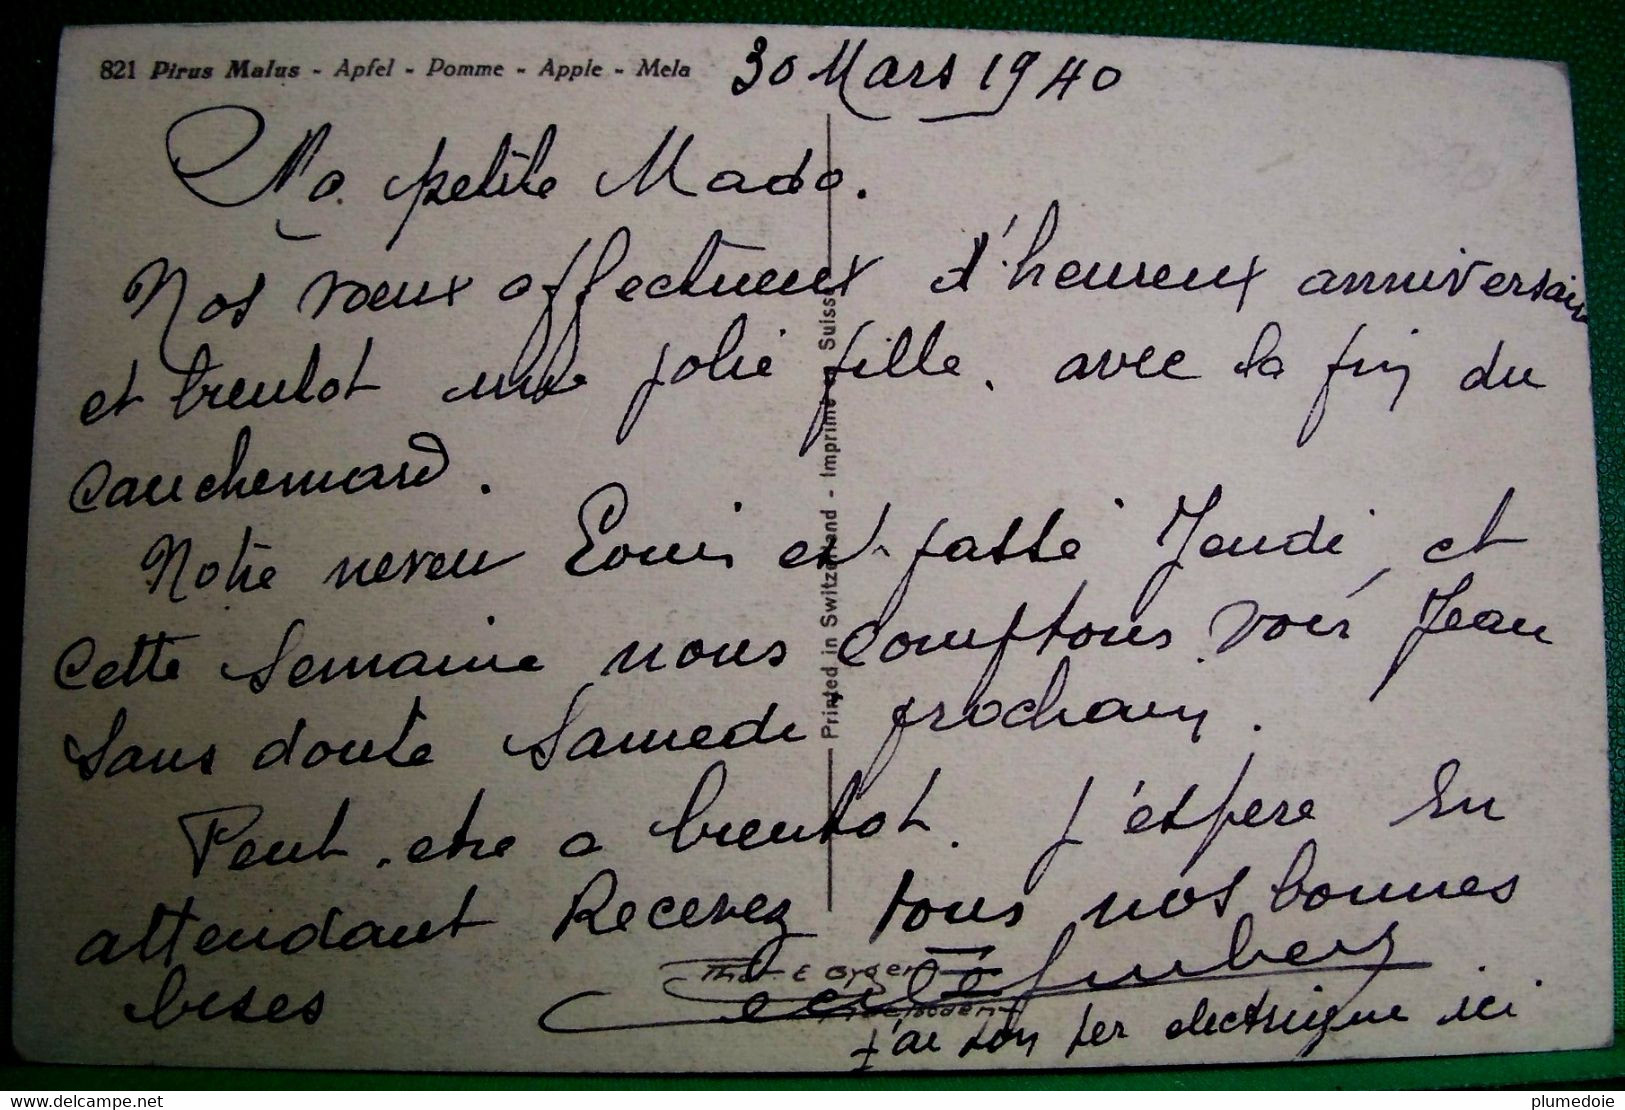 821 Pirus Malus - Apfel - Pomme - Apple - Mela
30 Mars 1940
Ma petite Mado.
Nos vœux affectueux d'heureux anniversaire
et bientot une jolie fille. avec la fin du
cauchemard.
Notre neveu Louis est passé Jeudi et
cette semaine nous comptons voir Jean
sans doute Samedi prochain.
Peut-etre a bientot. J'espere En
attendant Recevez tous nos bonnes
bises
j'ai ton fer electrique ici
Printed in Switzerland - Imprimé en Suisse
delcampe.net
plumedoie